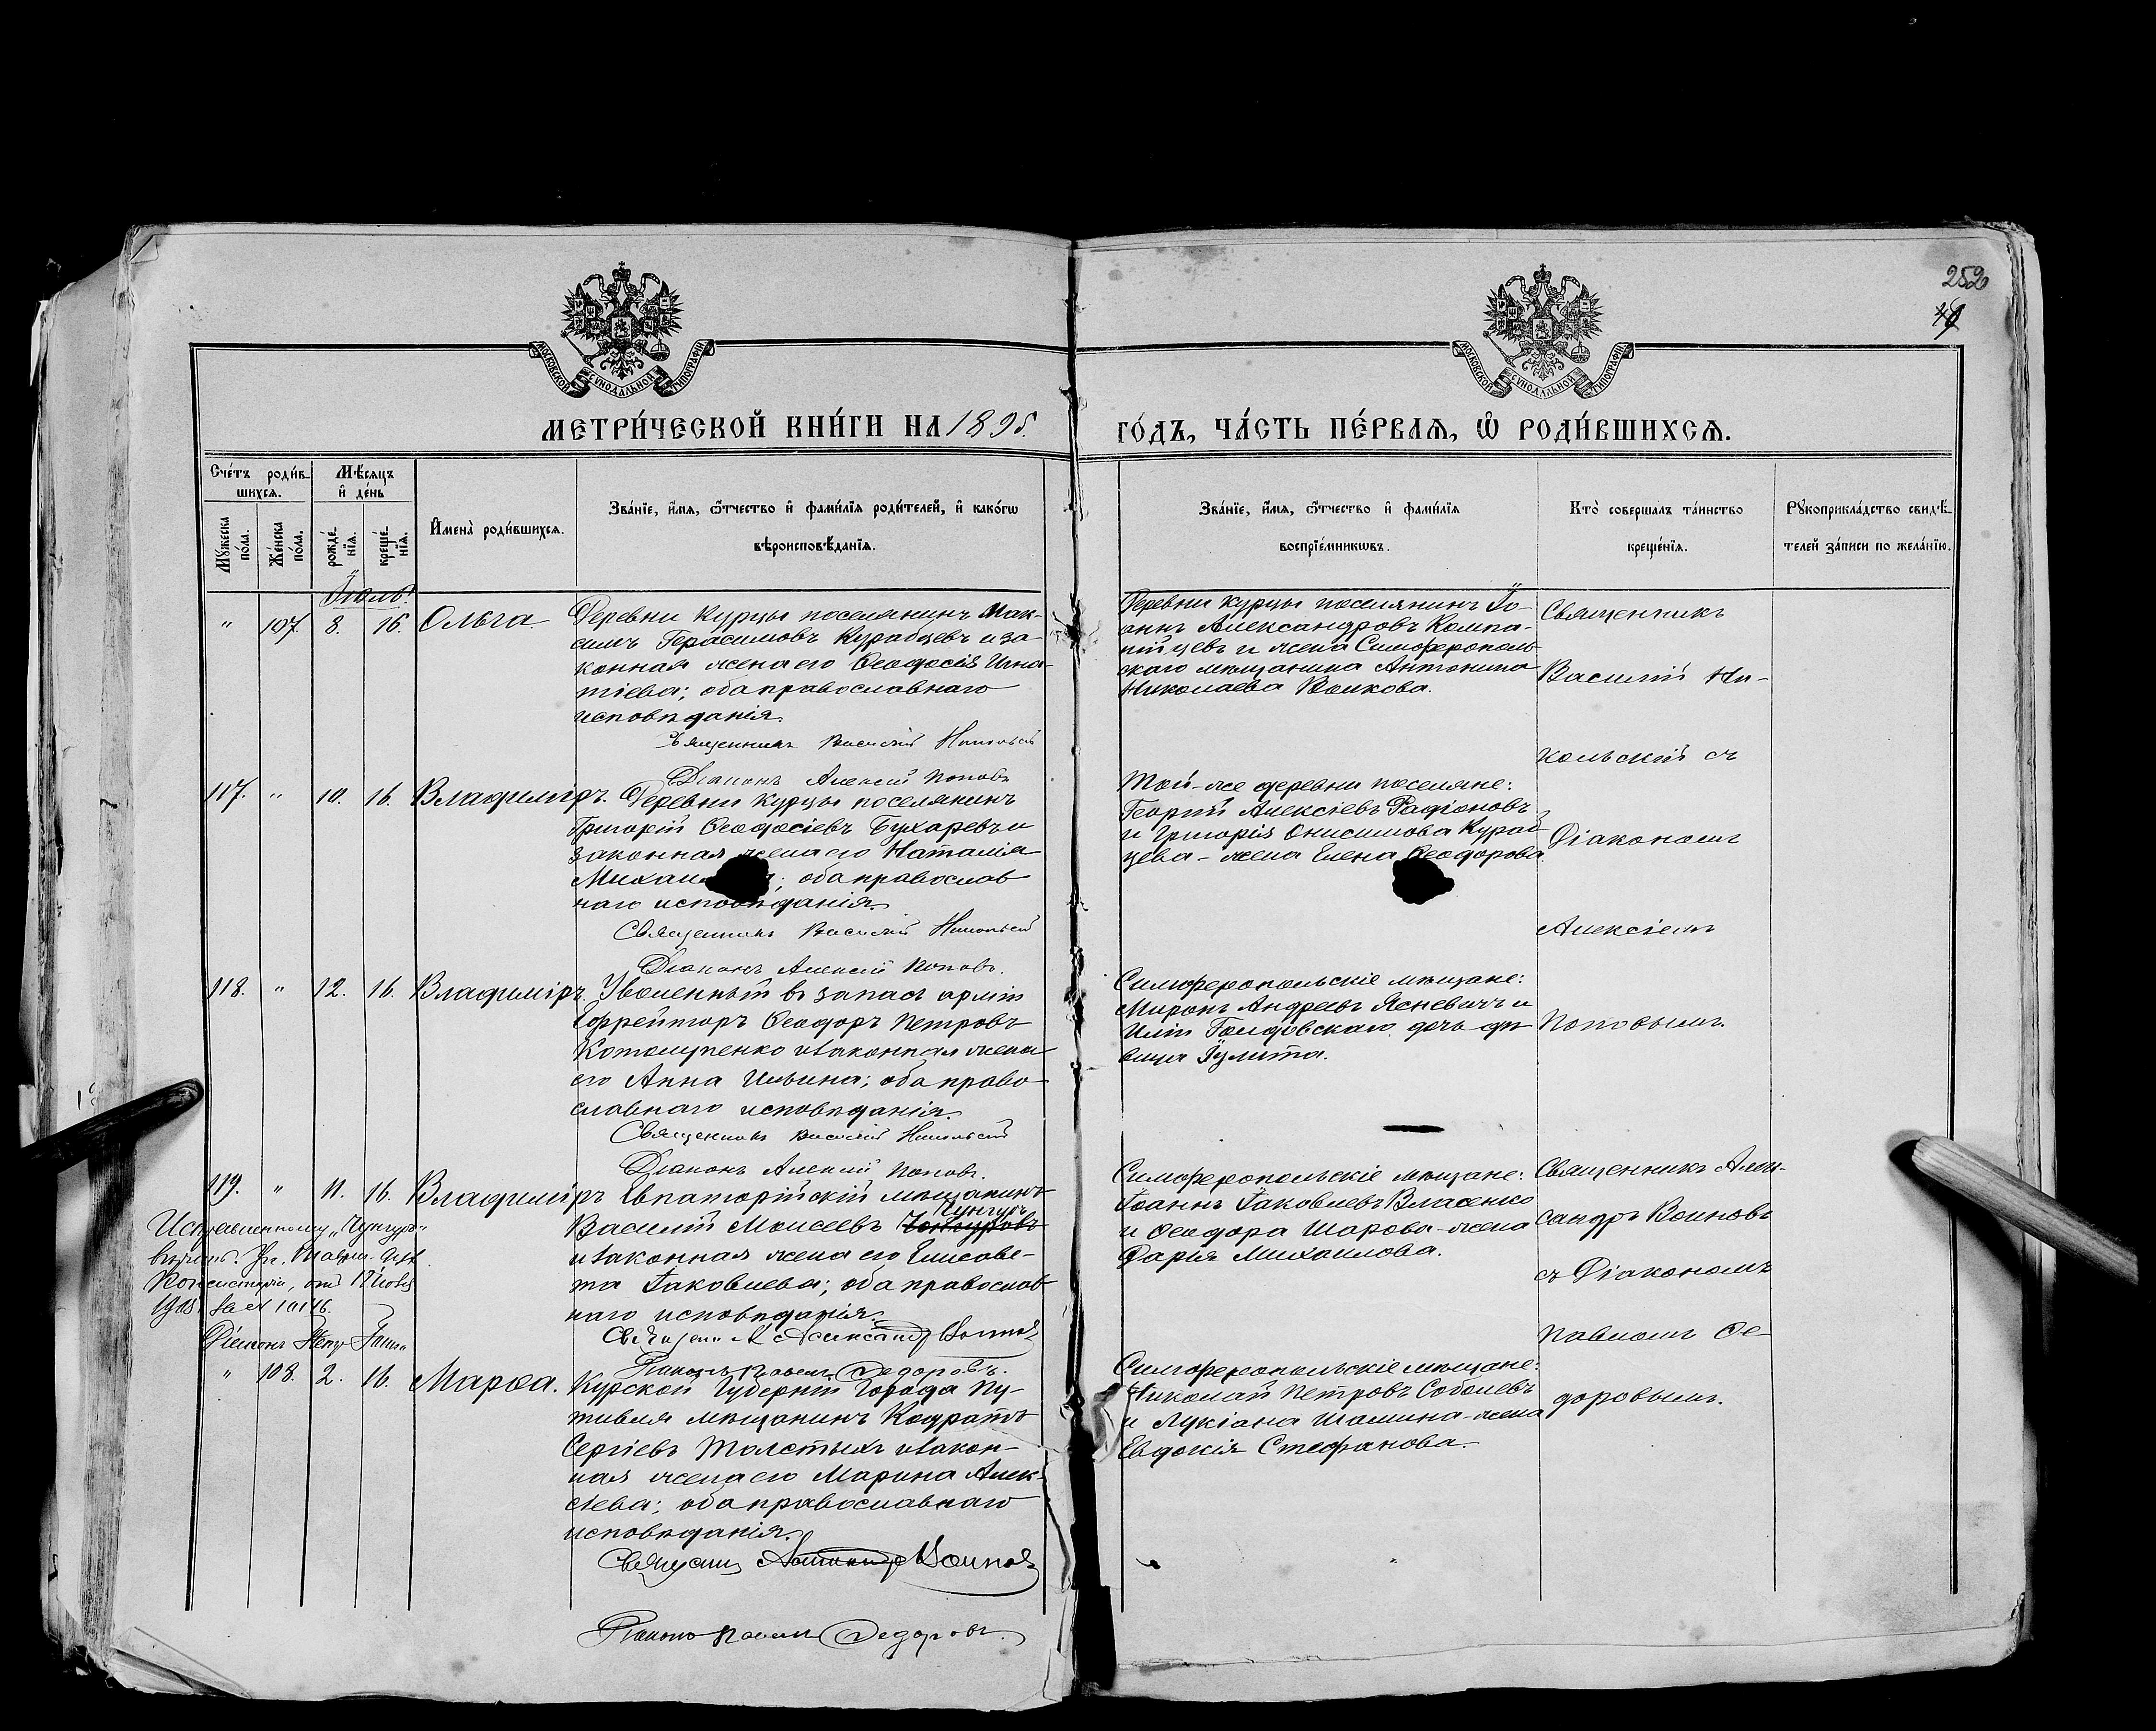 252
МОСКОВСКОЙ СѴНОДАЛЬНОЙ ТИПОГРАФІИ
МОСКОВСКОЙ СѴНОДАЛЬНОЙ ТИПОГРАФІИ
МЕТРИ́ЧЕСКОЙ КНИ́ГИ НА 1895.
ГО́ДЪ, ЧА́СТЬ ПЕ́РВАЯ, Ѡ҆ РОДИ́ВШИХСЯ.
Сче́тъ роди́в-
шихся.
Мѣ́сяцъ
и҆ де́нь
Мꙋ́жеска
по́ла.
Же́нска
по́ла.
рожде́-
нїя.
креще́-
нїя.
И҆мена̀ роди́вшихся.
Зва́нїе, и҆́мя, ѻ҆́тчество и҆ фами́лїя роди́телей, и҆ како́гѡ
вѣроисповѣ́данїя.
Зва́нїе, и҆́мя, ѻ҆́тчество и҆ фами́лїя
воспрїе́мникѡвъ.
Кто̀ совершалъ та́инство
креще́нїя.
Рꙋкоприкла́дство свидѣ́-
телей за́писи по жела́нїю.
Іюль.
" 107. 8. 16. Ольга
Деревни Курцы поселянинъ Мак-
симъ Герасимовъ Курабцевъ и за-
конная жена его Ѳеодосія Игна-
тіева; оба православнаго
исповѣданія.
Священникъ Василій Никольскій
Діаконъ Алексій Поповъ
Деревни Курцы поселянинъ Іо-
аннъ Александровъ Компа-
нійцевъ и жена Симферополь-
скаго мѣщанина Антонина
Николаева Волкова.
Священникъ
Василій Ни-
кольскій съ
Діакономъ
Алексіемъ
Поповымъ.
117. " 10. 16. Владиміръ.
Деревни Курцы поселянинъ
Григорій Ѳеодосіевъ Бухаревъ и
законная жена его Наталія
оба православ
наго исповѣданія.
Священникъ Василій Никольскій
Діаконъ Алексій Поповъ.
Той-же деревни поселяне:
Георгій Алексіевъ Радіоновъ
и Григорія Онисимова Кураб
цева - жена Елена Ѳеодорова.
118. " 12. 16. Владиміръ.
Уволенный въ запасъ арміи
Ефрейторъ Ѳеодоръ Петровъ
Котолупенко и законная жена
его Анна Ильина; оба право-
славнаго исповѣданія.
Священникъ Василій Никольскій
Діаконъ Алексій Поповъ.
Симферопольскіе мѣщане:
Миронъ Андреевъ Ясневичъ и
дочь дѣ
вица Іулита.
119. " 11. 16. Владиміръ
Евпаторійскій мѣщанинъ
Чунгуръ
Василій Моисеевъ
и законная жена его Елисаве-
та Іаковлева; оба православ
наго исповѣданія.
Священникъ Александръ Воиновъ
Діаконъ Павелъ Ѳедоровъ.
Исправленному "Чунгуръ"
Консисторіи, отъ
Діаконъ
Симферопольскіе мѣщане:
Іоаннъ Іаковлевъ Власенко
и Ѳеодора Шарова - жена
Дарія Михаилова.
Священникъ Алек-
сандръ Воиновъ
съ Діакономъ
Павломъ Ѳе-
доровымъ.
" 108. 2. 16. Марѳа.
Курской Губерніи Города Пу-
тивля мѣщанинъ Кодратъ
Сергіевъ Толстыхъ и закон-
ная жена его Марина Алек-
сіева; оба православнаго
исповѣданія.
Священникъ Александръ Воиновъ
Діаконъ Павелъ Ѳедоровъ.
Симферопольскіе мѣщане:
Николай Петровъ Соболевъ
и Лукіана Шамина - жена
Евдокія Стефанова.